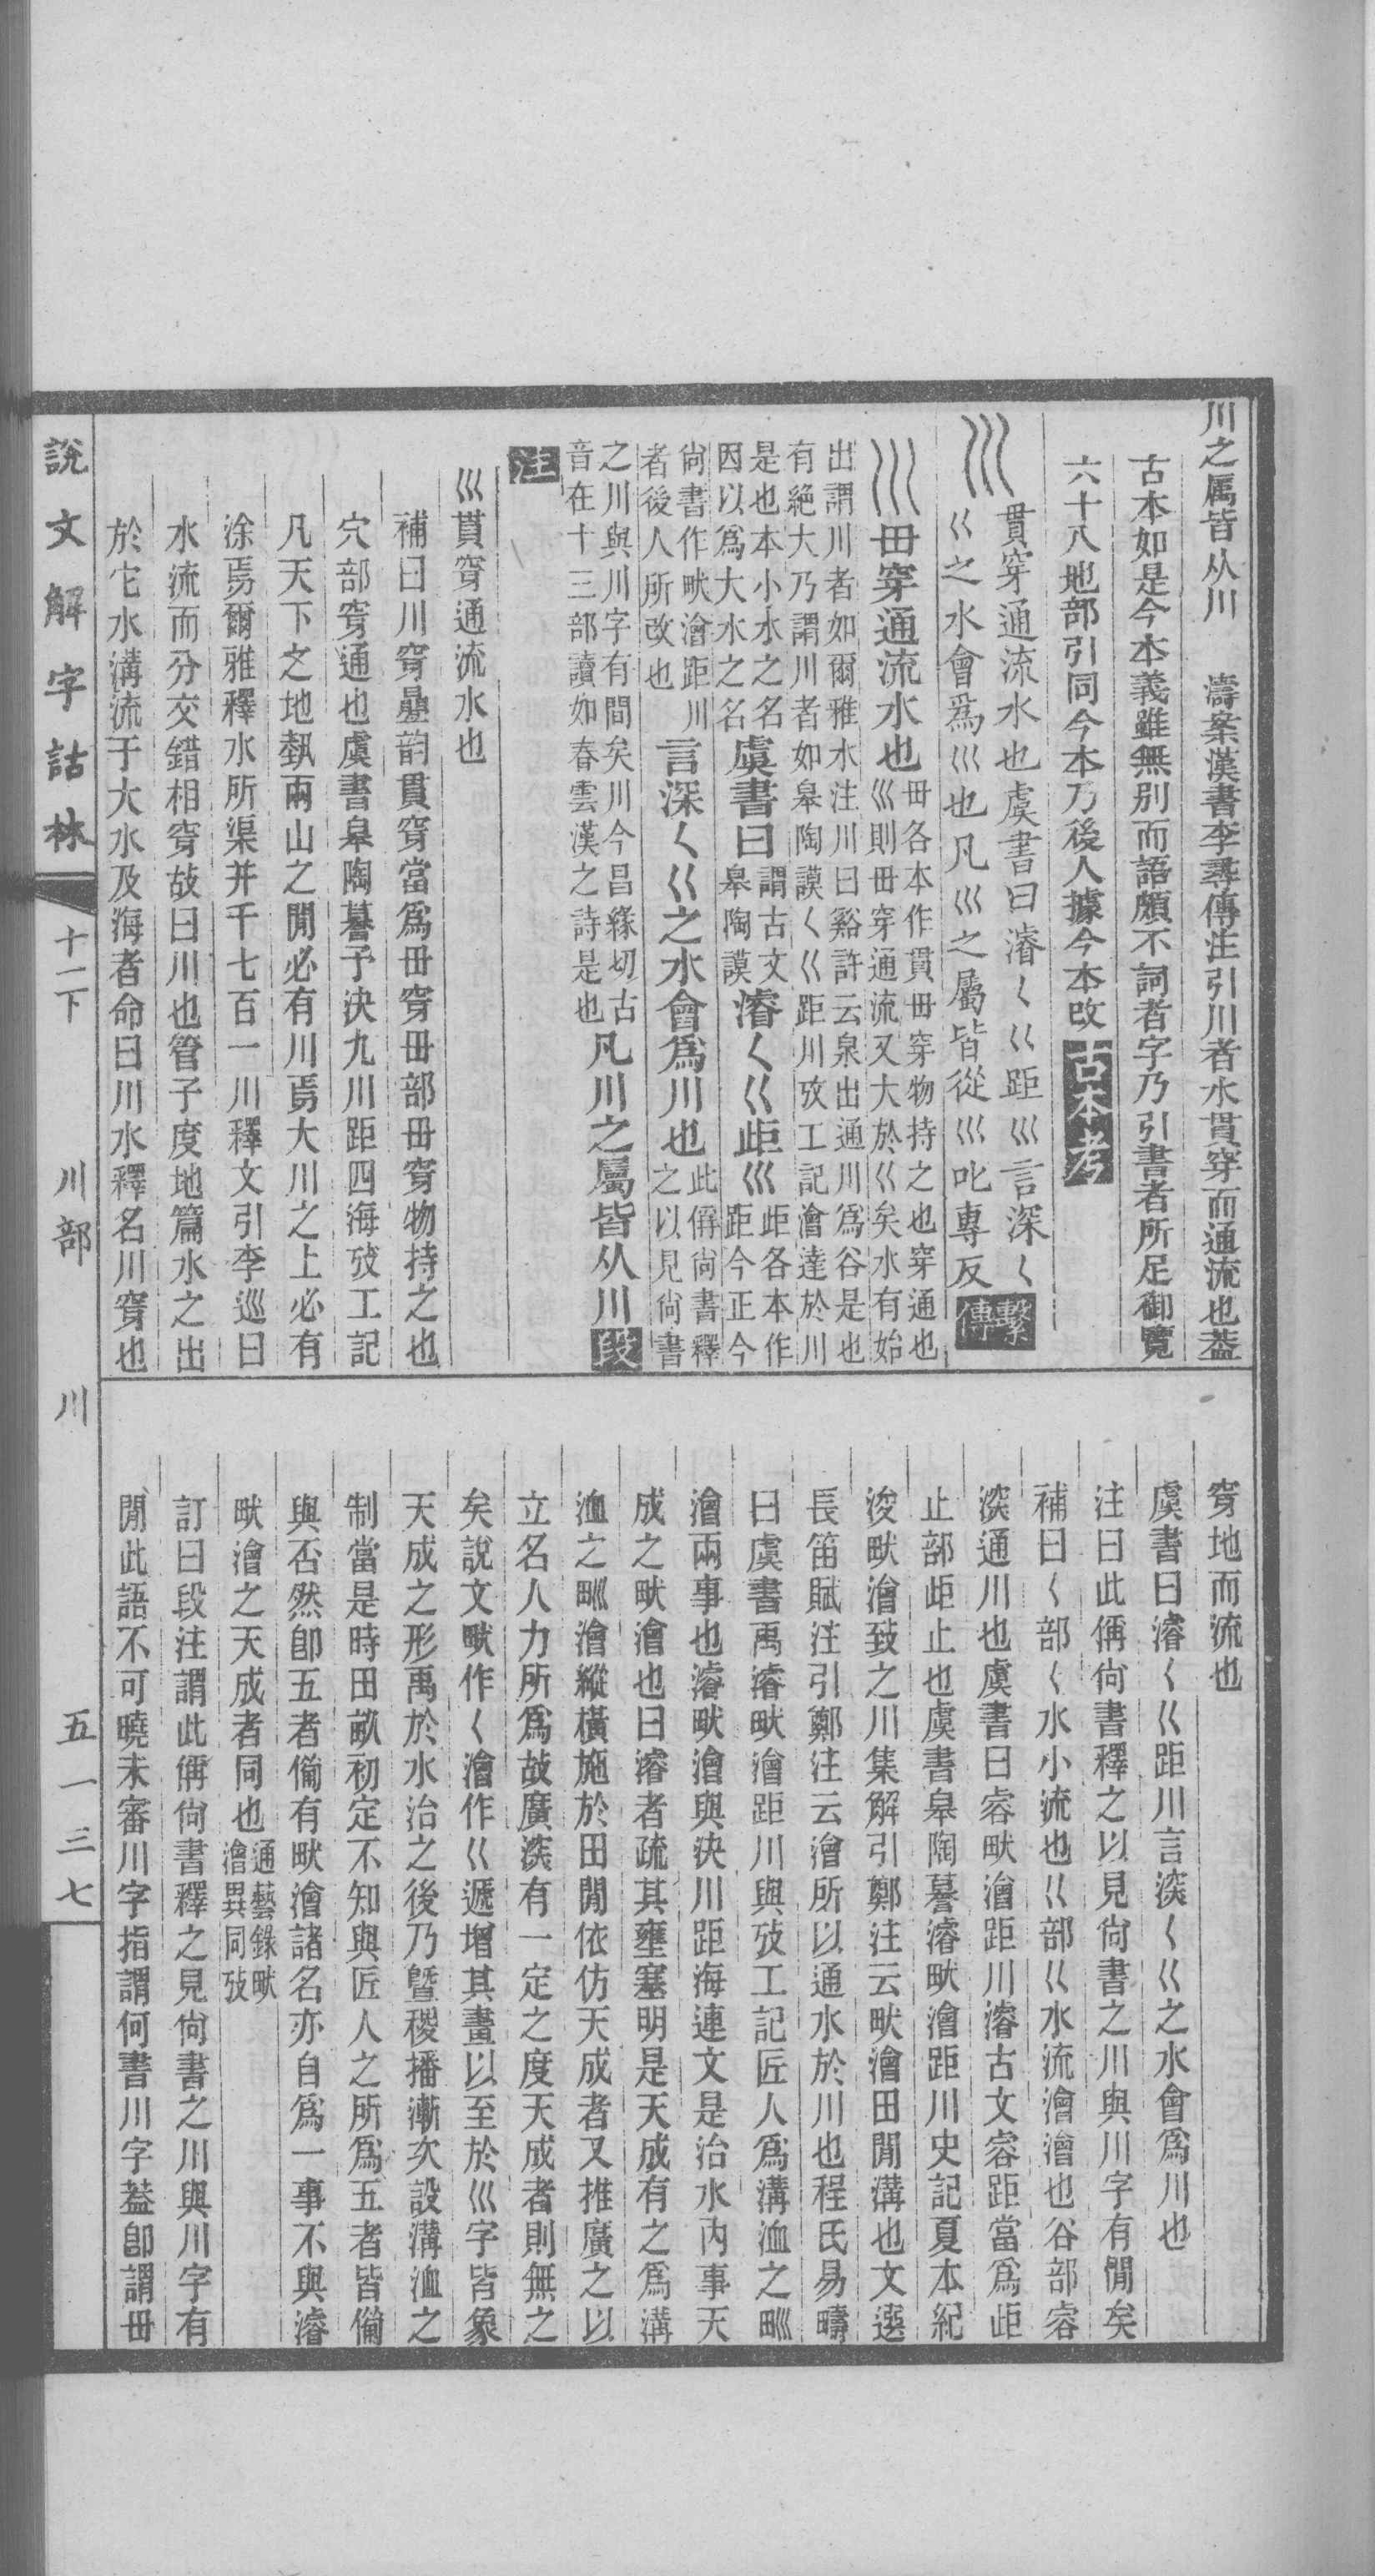 川之屬皆从川　濤案漢書李尋傳注引川者水貫穿而通流也葢
古本如是今本義雖無別而語頗不詞者字乃引書者所足御覽
六十八地部引同今本乃後人據今本改 古本考
巛 貫穿通流水也虞書曰濬𡿨巜距巛言深𡿨
巜之水會爲巛也凡巛之屬皆從巛叱專反 繫傳
巛 毌穿通流水也 毌各本作貫毌穿物持之也穿通也
巛則毌穿通流又大於巜矣水有始
出謂川者如爾雅水注川曰谿許云泉出通川爲谷是也
有絕大乃謂川者如皋陶謨𡿨巜距川攷工記澮達於川
是也本小水之名
因以爲大水之名 虞書曰 謂古文
皋陶謨 濬𡿨巜歫巛 歫各本作
距今正今
尙書作畎澮距川
者後人所改也 言深𡿨巜之水會爲川也 此偁尙書釋
之以見尙書
之川與川字有間矣川今昌緣切古
音在十三部讀如春雲漢之詩是也 凡川之屬皆从川 段
注
巛貫穿通流水也
補曰川穿㬪韵貫穿當爲毌穿毌部毌穿物持之也
穴部穿通也虞書皋陶謩予決九川距四海攷工記
凡天下之地埶兩山之閒必有川焉大川之上必有
涂焉爾雅釋水所渠并千七百一川釋文引李巡曰
水流而分交錯相穿故曰川也管子度地篇水之出
於它水溝流于大水及海者命曰川水釋名川穿也
穿地而流也
虞書曰濬𡿨巜距川言深𡿨巜之水會爲川也
注曰此偁尙書釋之以見尙書之川與川字有閒矣
補曰𡿨部𡿨水小流也巜部巜水流澮澮也谷部㕡
深通川也虞書曰㕡畎澮距川濬古文㕡距當爲歫
止部歫止也虞書皋陶謩濬畎澮距川史記夏本紀
浚畎澮致之川集解引鄭注云畎澮田閒溝也文選
長笛賦注引鄭注云澮所以通水於川也程氏易疇
曰虞書禹濬畎澮距川與攷工記匠人爲溝洫之甽
澮兩事也濬畎澮與決川距海連文是治水內事天
成之畎澮也曰濬者疏其壅塞明是天成有之爲溝
洫之甽澮縱橫施於田閒依仿天成者又推廣之以
立名人力所爲故廣深有一定之度天成者則無之
矣說文畎作𡿨澮作巜遞增其畫以至於巛字皆象
天成之形禹於水治之後乃曁稷播漸次設溝洫之
制當是時田畝初定不知與匠人之所爲五者皆僃
與否然卽五者僃有畎澮諸名亦自爲一事不與濬
畎澮之天成者同也 通藝錄畎
澮異同攷
訂曰段注謂此偁尙書釋之見尙書之川與川字有
閒此語不可曉未審川字指謂何書川字葢卽謂毌
說文解字詁林 十一下 川部 川 五一三七